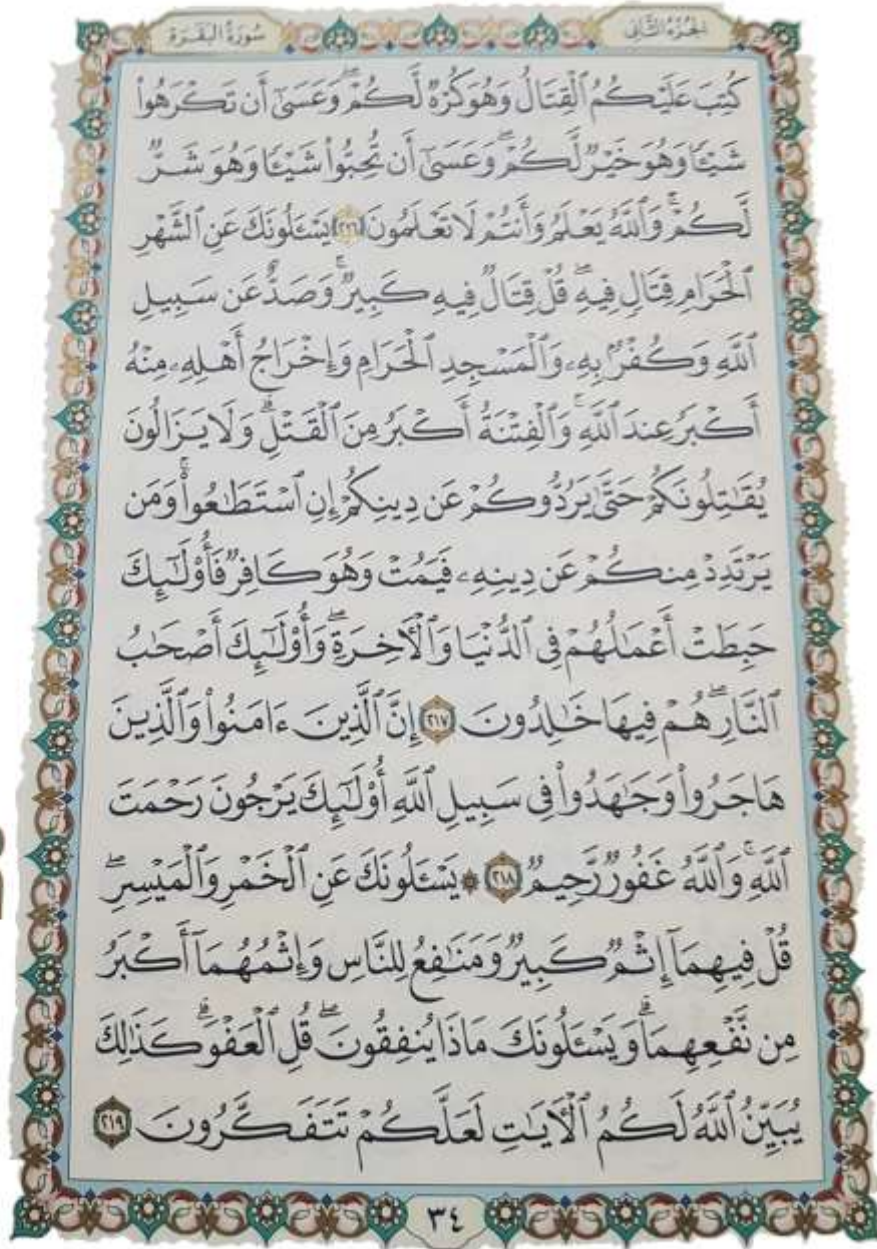 الجزء الثاني
سورة البقرة
كُتِبَ عَلَيْكُمُ ٱلْقِتَالُ وَهُوَ كُرْهٌ لَّكُمْ ۖ وَعَسَىٰٓ أَن تَكْرَهُوا۟
شَيْـًٔا وَهُوَ خَيْرٌ لَّكُمْ ۖ وَعَسَىٰٓ أَن تُحِبُّوا۟ شَيْـًٔا وَهُوَ شَرٌّ
لَّكُمْ ۗ وَٱللَّهُ يَعْلَمُ وَأَنتُمْ لَا تَعْلَمُونَ ٢١٦ يَسْـَٔلُونَكَ عَنِ ٱلشَّهْرِ
ٱلْحَرَامِ قِتَالٍ فِيهِ ۖ قُلْ قِتَالٌ فِيهِ كَبِيرٌ ۖ وَصَدٌّ عَن سَبِيلِ
ٱللَّهِ وَكُفْرٌۢ بِهِۦ وَٱلْمَسْجِدِ ٱلْحَرَامِ وَإِخْرَاجُ أَهْلِهِۦ مِنْهُ
أَكْبَرُ عِندَ ٱللَّهِ ۚ وَٱلْفِتْنَةُ أَكْبَرُ مِنَ ٱلْقَتْلِ ۗ وَلَا يَزَالُونَ
يُقَـٰتِلُونَكُمْ حَتَّىٰ يَرُدُّوكُمْ عَن دِينِكُمْ إِنِ ٱسْتَطَـٰعُوا۟ ۚ وَمَن
يَرْتَدِدْ مِنكُمْ عَن دِينِهِۦ فَيَمُتْ وَهُوَ كَافِرٌ فَأُو۟لَـٰٓئِكَ
حَبِطَتْ أَعْمَـٰلُهُمْ فِى ٱلدُّنْيَا وَٱلْـَٔاخِرَةِ ۖ وَأُو۟لَـٰٓئِكَ أَصْحَـٰبُ
ٱلنَّارِ ۖ هُمْ فِيهَا خَـٰلِدُونَ ٢١٧ إِنَّ ٱلَّذِينَ ءَامَنُوا۟ وَٱلَّذِينَ
هَاجَرُوا۟ وَجَـٰهَدُوا۟ فِى سَبِيلِ ٱللَّهِ أُو۟لَـٰٓئِكَ يَرْجُونَ رَحْمَتَ
ٱللَّهِ ۚ وَٱللَّهُ غَفُورٌ رَّحِيمٌ ٢١٨ ۞ يَسْـَٔلُونَكَ عَنِ ٱلْخَمْرِ وَٱلْمَيْسِرِ ۖ
قُلْ فِيهِمَآ إِثْمٌ كَبِيرٌ وَمَنَـٰفِعُ لِلنَّاسِ وَإِثْمُهُمَآ أَكْبَرُ
مِن نَّفْعِهِمَا ۗ وَيَسْـَٔلُونَكَ مَاذَا يُنفِقُونَ ۖ قُلِ ٱلْعَفْوَ ۗ كَذَٰلِكَ
يُبَيِّنُ ٱللَّهُ لَكُمُ ٱلْـَٔايَـٰتِ لَعَلَّكُمْ تَتَفَكَّرُونَ ٢١٩
٣٤